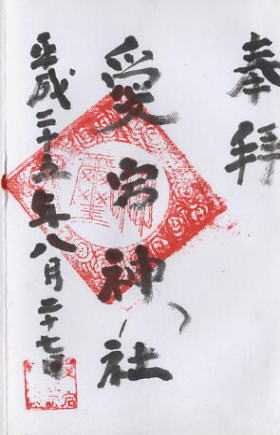 奉拝
愛宕神社
平成二十五年八月二十七日